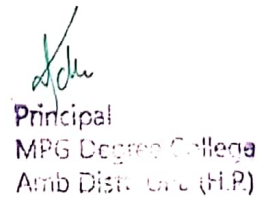 Principal
MPG Degree College
Amb Distt. (H.P.)